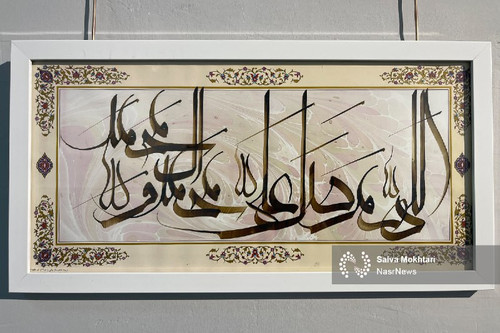 اللهم صل علی محمد و آل محمد
Saiva Mokhtari
NasrNews